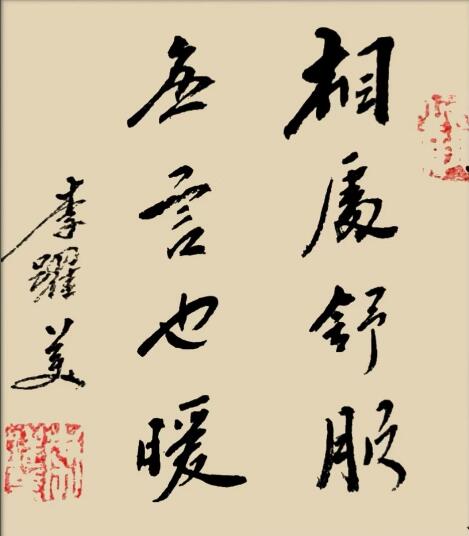 相處舒服
無言也暖
李躍美